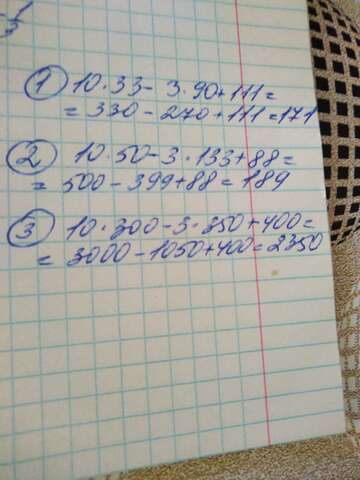 1 10·33-3·90+111=
=330-270+111=171
2 10·50-3·133+88=
=500-399+88=189
3 10·300-3·350+400=
=3000-1050+400=2350